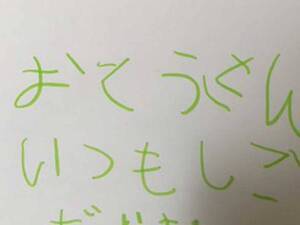 おとうさん
いつもしご